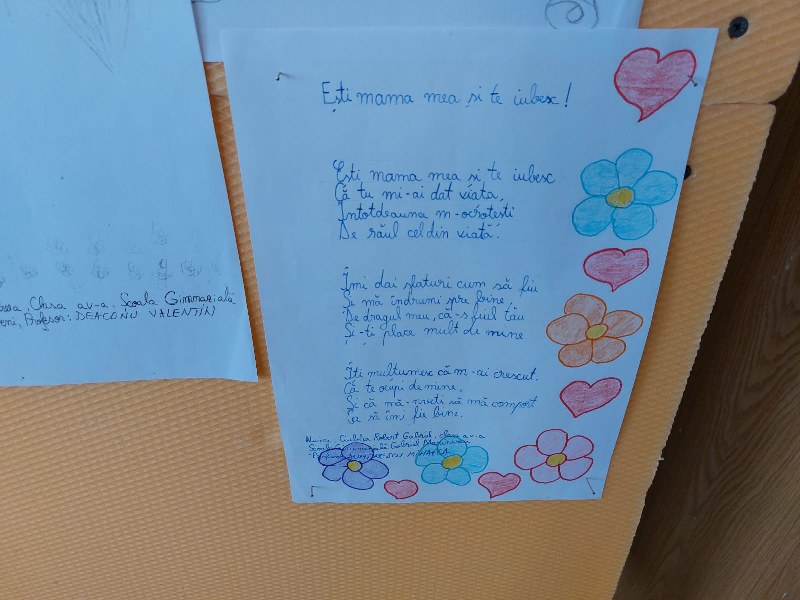 Ești mama mea și te iubesc!
Ești mama mea și te iubesc
Că tu mi-ai dat viața,
Întotdeauna m-ocrotești
De răul cel din viață.
Îmi dai sfaturi cum să fiu
Și mă îndrumi spre bine,
De dragul meu, că-s fiul tău
Și-ți place mult de mine
Îți mulțumesc că m-ai crescut,
Că te ocupi de mine,
Și că mă-nveți să mă comport
Ca să îmi fie bine.
Robert Gabriel, clasa a v-a
Gabriel
Clasa a v-a, Școala Gimnazială
Profesor: DEACONU VALENTIN